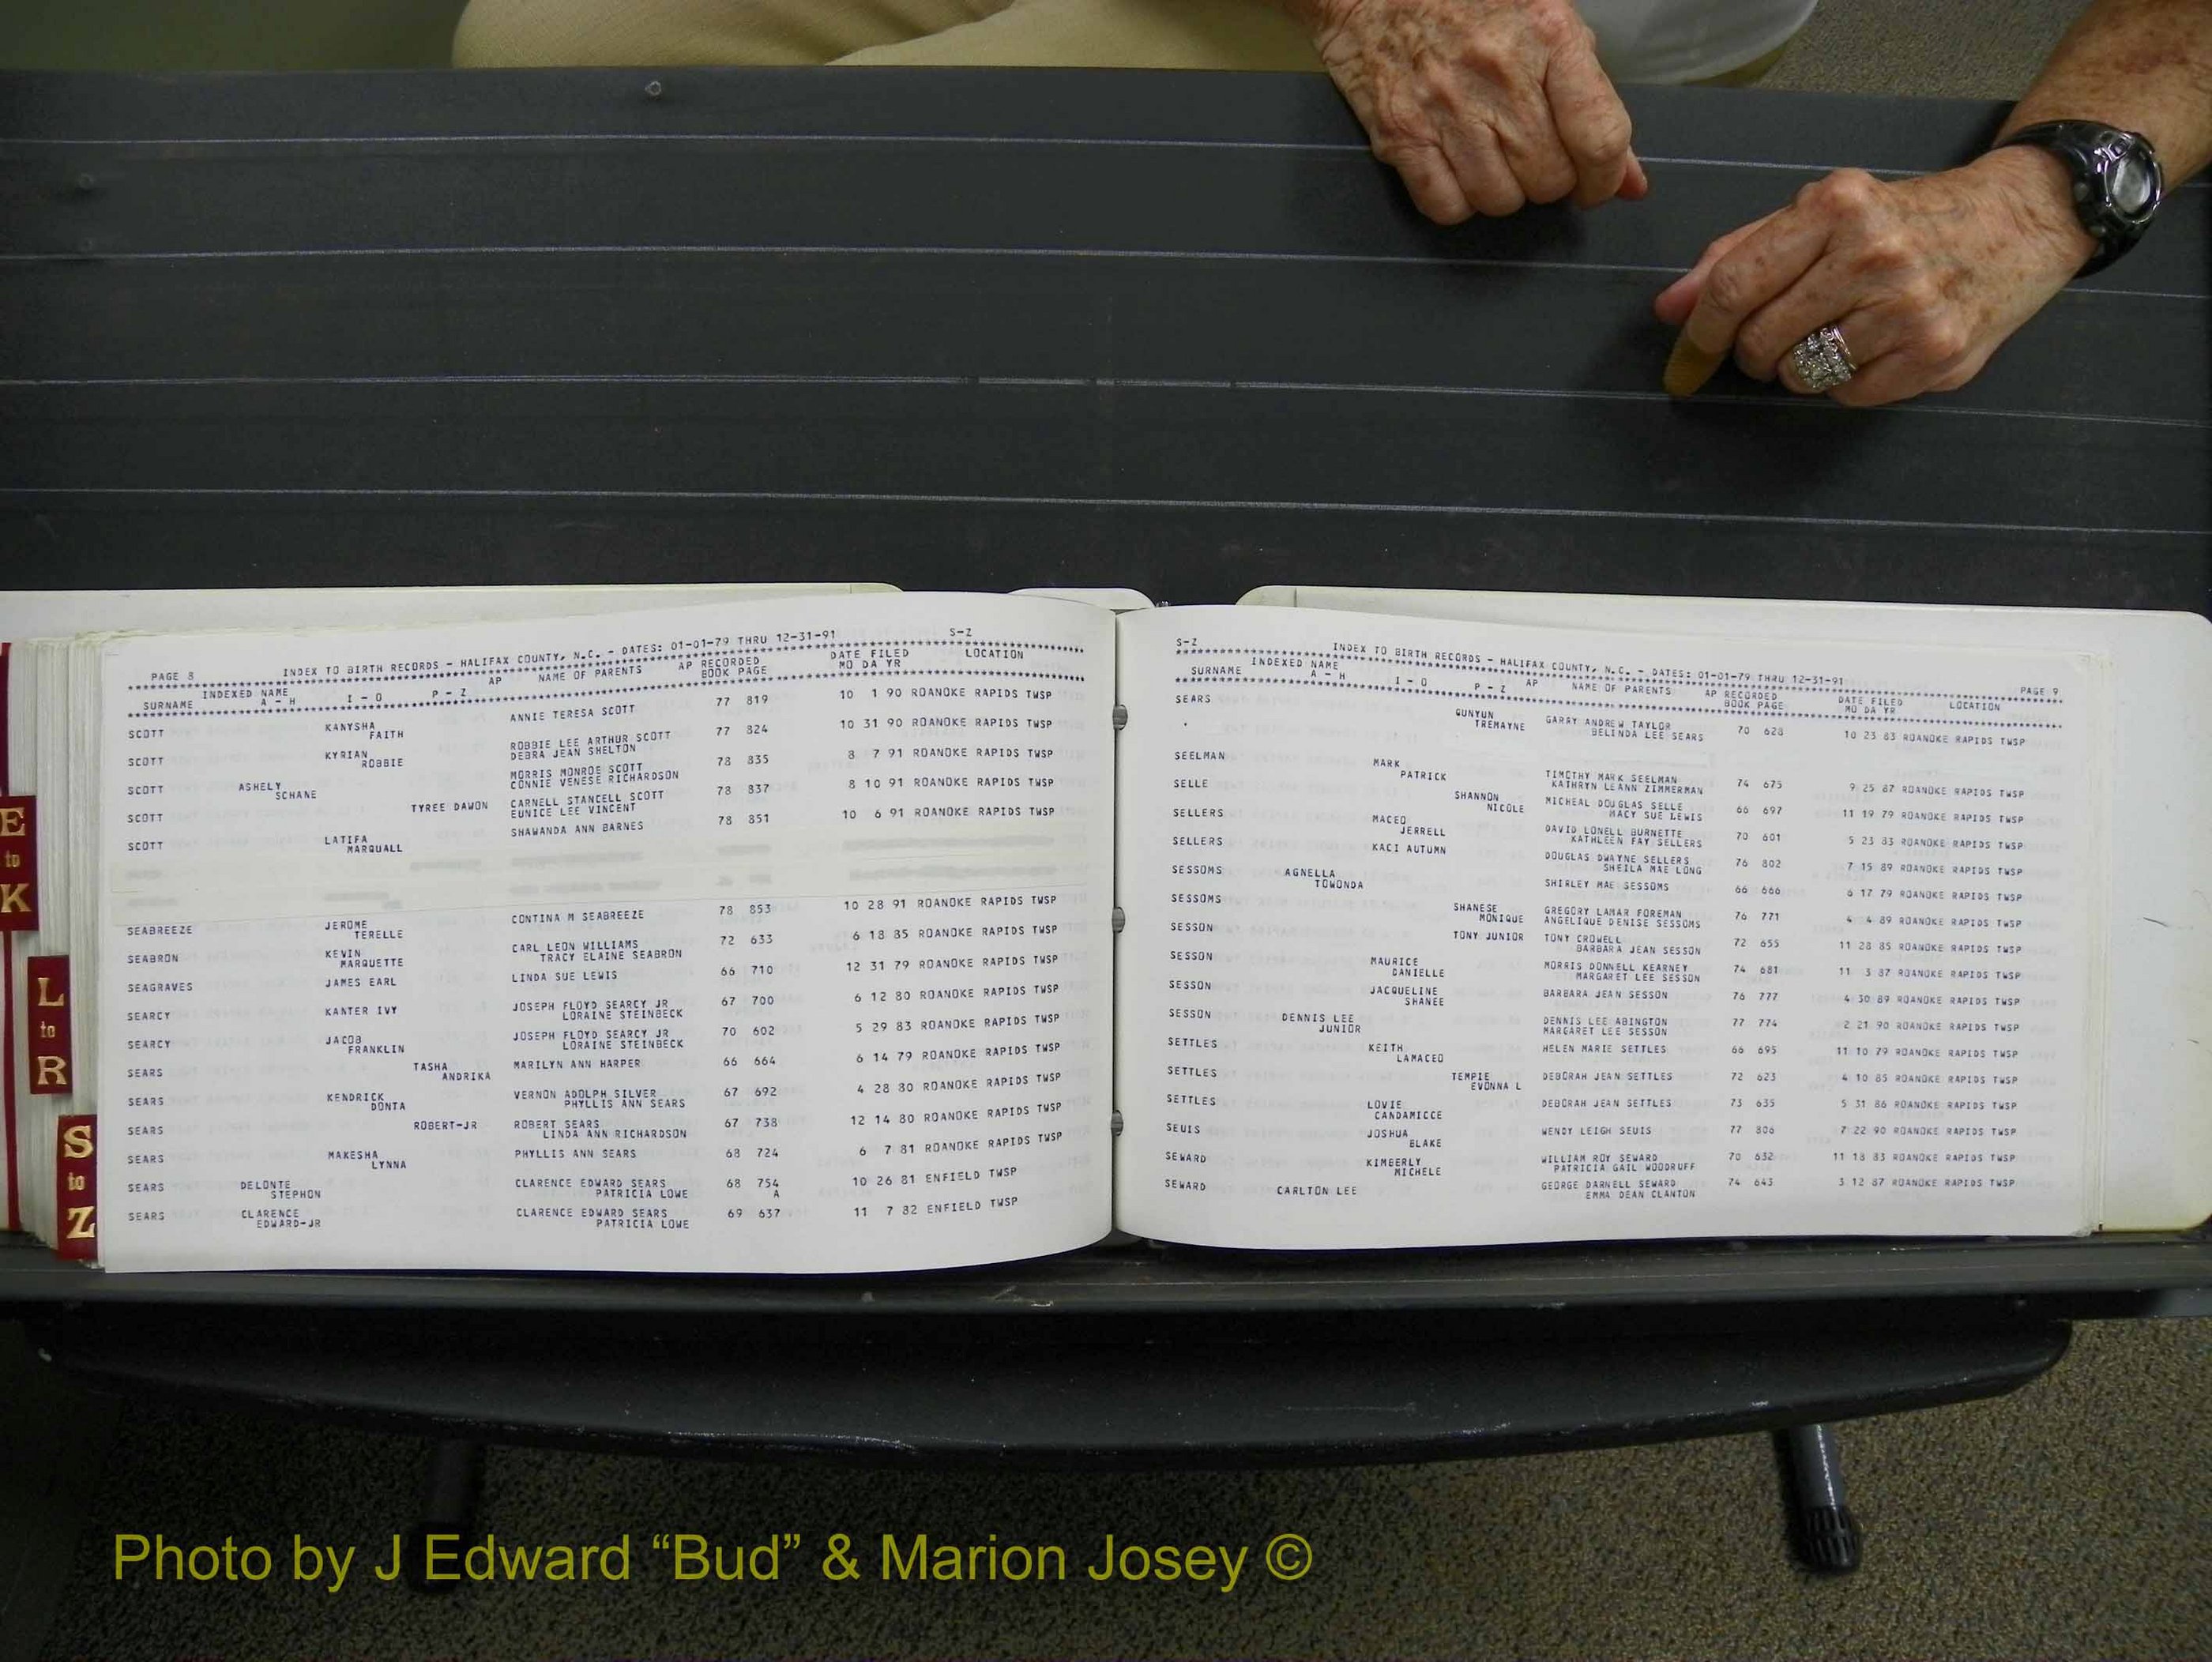 E
to
K
L
to
R
S
to
Z
PAGE 8 INDEX TO BIRTH RECORDS - HALIFAX COUNTY, N.C. - DATES: 01-01-79 THRU 12-31-91 S-Z
INDEXED NAME AP NAME OF PARENTS AP RECORDED DATE FILED LOCATION
SURNAME A - H I - O P - Z BOOK PAGE MO DA YR
SCOTT KANYSHA ANNIE TERESA SCOTT 77 819 10 1 90 ROANOKE RAPIDS TWSP
FAITH
SCOTT KYRIAN ROBBIE LEE ARTHUR SCOTT 77 824 10 31 90 ROANOKE RAPIDS TWSP
ROBBIE DEBRA JEAN SHELTON
SCOTT ASHELY MORRIS MONROE SCOTT 78 835 8 7 91 ROANOKE RAPIDS TWSP
SCHANE CONNIE VENESE RICHARDSON
SCOTT TYREE DAWON CARNELL STANCELL SCOTT 78 837 8 10 91 ROANOKE RAPIDS TWSP
EUNICE LEE VINCENT
SCOTT LATIFA SHAWANDA ANN BARNES 78 851 10 6 91 ROANOKE RAPIDS TWSP
MARQUALL
SEABREEZE JEROME CONTINA M SEABREEZE 78 853 10 28 91 ROANOKE RAPIDS TWSP
TERELLE
SEABRON KEVIN CARL LEON WILLIAMS 72 633 6 18 85 ROANOKE RAPIDS TWSP
MARQUETTE TRACY ELAINE SEABRON
SEAGRAVES JAMES EARL LINDA SUE LEWIS 66 710 12 31 79 ROANOKE RAPIDS TWSP
SEARCY KANTER IVY JOSEPH FLOYD SEARCY JR 67 700 6 12 80 ROANOKE RAPIDS TWSP
LORAINE STEINBECK
SEARCY JACOB JOSEPH FLOYD SEARCY JR 70 602 5 29 83 ROANOKE RAPIDS TWSP
FRANKLIN LORAINE STEINBECK
SEARS TASHA MARILYN ANN HARPER 66 664 6 14 79 ROANOKE RAPIDS TWSP
ANDRIKA
SEARS KENDRICK VERNON ADOLPH SILVER 67 692 4 28 80 ROANOKE RAPIDS TWSP
DONTA PHYLLIS ANN SEARS
SEARS ROBERT-JR ROBERT SEARS 67 738 12 14 80 ROANOKE RAPIDS TWSP
LINDA ANN RICHARDSON
SEARS MAKESHA PHYLLIS ANN SEARS 68 724 6 7 81 ROANOKE RAPIDS TWSP
LYNNA
SEARS DELONTE CLARENCE EDWARD SEARS 68 754 10 26 81 ENFIELD TWSP
STEPHON PATRICIA LOWE A
SEARS CLARENCE CLARENCE EDWARD SEARS 69 637 11 7 82 ENFIELD TWSP
EDWARD-JR PATRICIA LOWE
S-Z INDEX TO BIRTH RECORDS - HALIFAX COUNTY, N.C. - DATES: 01-01-79 THRU 12-31-91 PAGE 9
INDEXED NAME AP NAME OF PARENTS AP RECORDED DATE FILED LOCATION
SURNAME A - H I - O P - Z BOOK PAGE MO DA YR
SEARS QUNYUN GARRY ANDREW TAYLOR 70 628 10 23 83 ROANOKE RAPIDS TWSP
TREMAYNE BELINDA LEE SEARS
SEELMAN MARK TIMOTHY MARK SEELMAN 74 675 9 25 87 ROANOKE RAPIDS TWSP
PATRICK KATHRYN LEANN ZIMMERMAN
SELLE SHANNON MICHEAL DOUGLAS SELLE 66 697 11 19 79 ROANOKE RAPIDS TWSP
NICOLE MACY SUE LEWIS
SELLERS MACEO DAVID LONELL BURNETTE 70 601 5 23 83 ROANOKE RAPIDS TWSP
JERRELL KATHLEEN FAY SELLERS
SELLERS KACI AUTUMN DOUGLAS DWAYNE SELLERS 76 802 7 15 89 ROANOKE RAPIDS TWSP
SHEILA MAE LONG
SESSOMS AGNELLA SHIRLEY MAE SESSOMS 66 666 6 17 79 ROANOKE RAPIDS TWSP
TOWONDA
SESSOMS SHANESE GREGORY LAMAR FOREMAN 76 771 4 4 89 ROANOKE RAPIDS TWSP
MONIQUE ANGELIQUE DENISE SESSOMS
SESSON TONY JUNIOR TONY CROWELL 72 655 11 28 85 ROANOKE RAPIDS TWSP
BARBARA JEAN SESSON
SESSON MAURICE MORRIS DONNELL KEARNEY 74 681 11 3 87 ROANOKE RAPIDS TWSP
DANIELLE MARGARET LEE SESSON
SESSON JACQUELINE BARBARA JEAN SESSON 76 777 4 30 89 ROANOKE RAPIDS TWSP
SHANEE
SESSON DENNIS LEE DENNIS LEE ABINGTON 77 774 2 21 90 ROANOKE RAPIDS TWSP
JUNIOR MARGARET LEE SESSON
SETTLES KEITH HELEN MARIE SETTLES 66 695 11 10 79 ROANOKE RAPIDS TWSP
LAMACEO
SETTLES TEMPIE DEBORAH JEAN SETTLES 72 623 4 10 85 ROANOKE RAPIDS TWSP
EVONNA L
SETTLES LOVIE DEBORAH JEAN SETTLES 73 635 5 31 86 ROANOKE RAPIDS TWSP
CANDAMICCE
SEUIS JOSHUA WENDY LEIGH SEUIS 77 806 7 22 90 ROANOKE RAPIDS TWSP
BLAKE
SEWARD KIMBERLY WILLIAM ROY SEWARD 70 632 11 18 83 ROANOKE RAPIDS TWSP
MICHELE PATRICIA GAIL WOODRUFF
SEWARD CARLTON LEE GEORGE DARNELL SEWARD 74 643 3 12 87 ROANOKE RAPIDS TWSP
EMMA DEAN CLANTON
Photo by J Edward “Bud” & Marion Josey ©